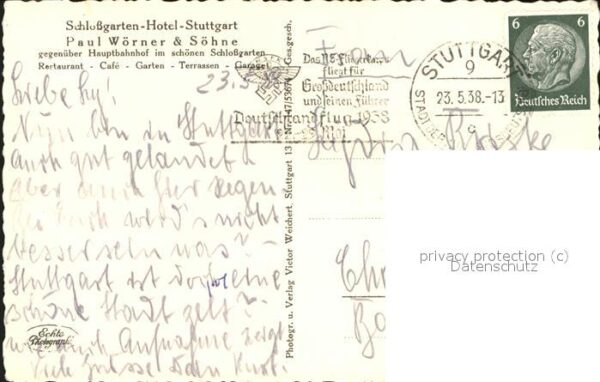 Schloßgarten-Hotel-Stuttgart
Paul Wörner & Söhne
gegenüber Hauptbahnhof im schönen Schloßgarten
Restaurant - Café - Garten - Terrassen - Garage
23.5.38
Liebe
Nun bin in Stuttgart
auch gut gelandet
aber auch hier Regen.
Bei Euch wird's nicht
besser sein was? -
Stuttgart ist doch eine
schöne Stadt gelt?
wie auch Aufnahme zeigt
Viele Grüsse Dein Kurt.
Echte Photographie
Photogr. u. Verlag Victor Weichert, Stuttgart 13
Ges.gesch.
Das NS-Fliegerkorps
fliegt für
Großdeutschland
und seinen Führer
Deutschlandflug 1938
Mai
STUTTGART
9
23.5.38.-13
c
6 6
Deutsches Reich
Frau
privacy protection (c)
Datenschutz